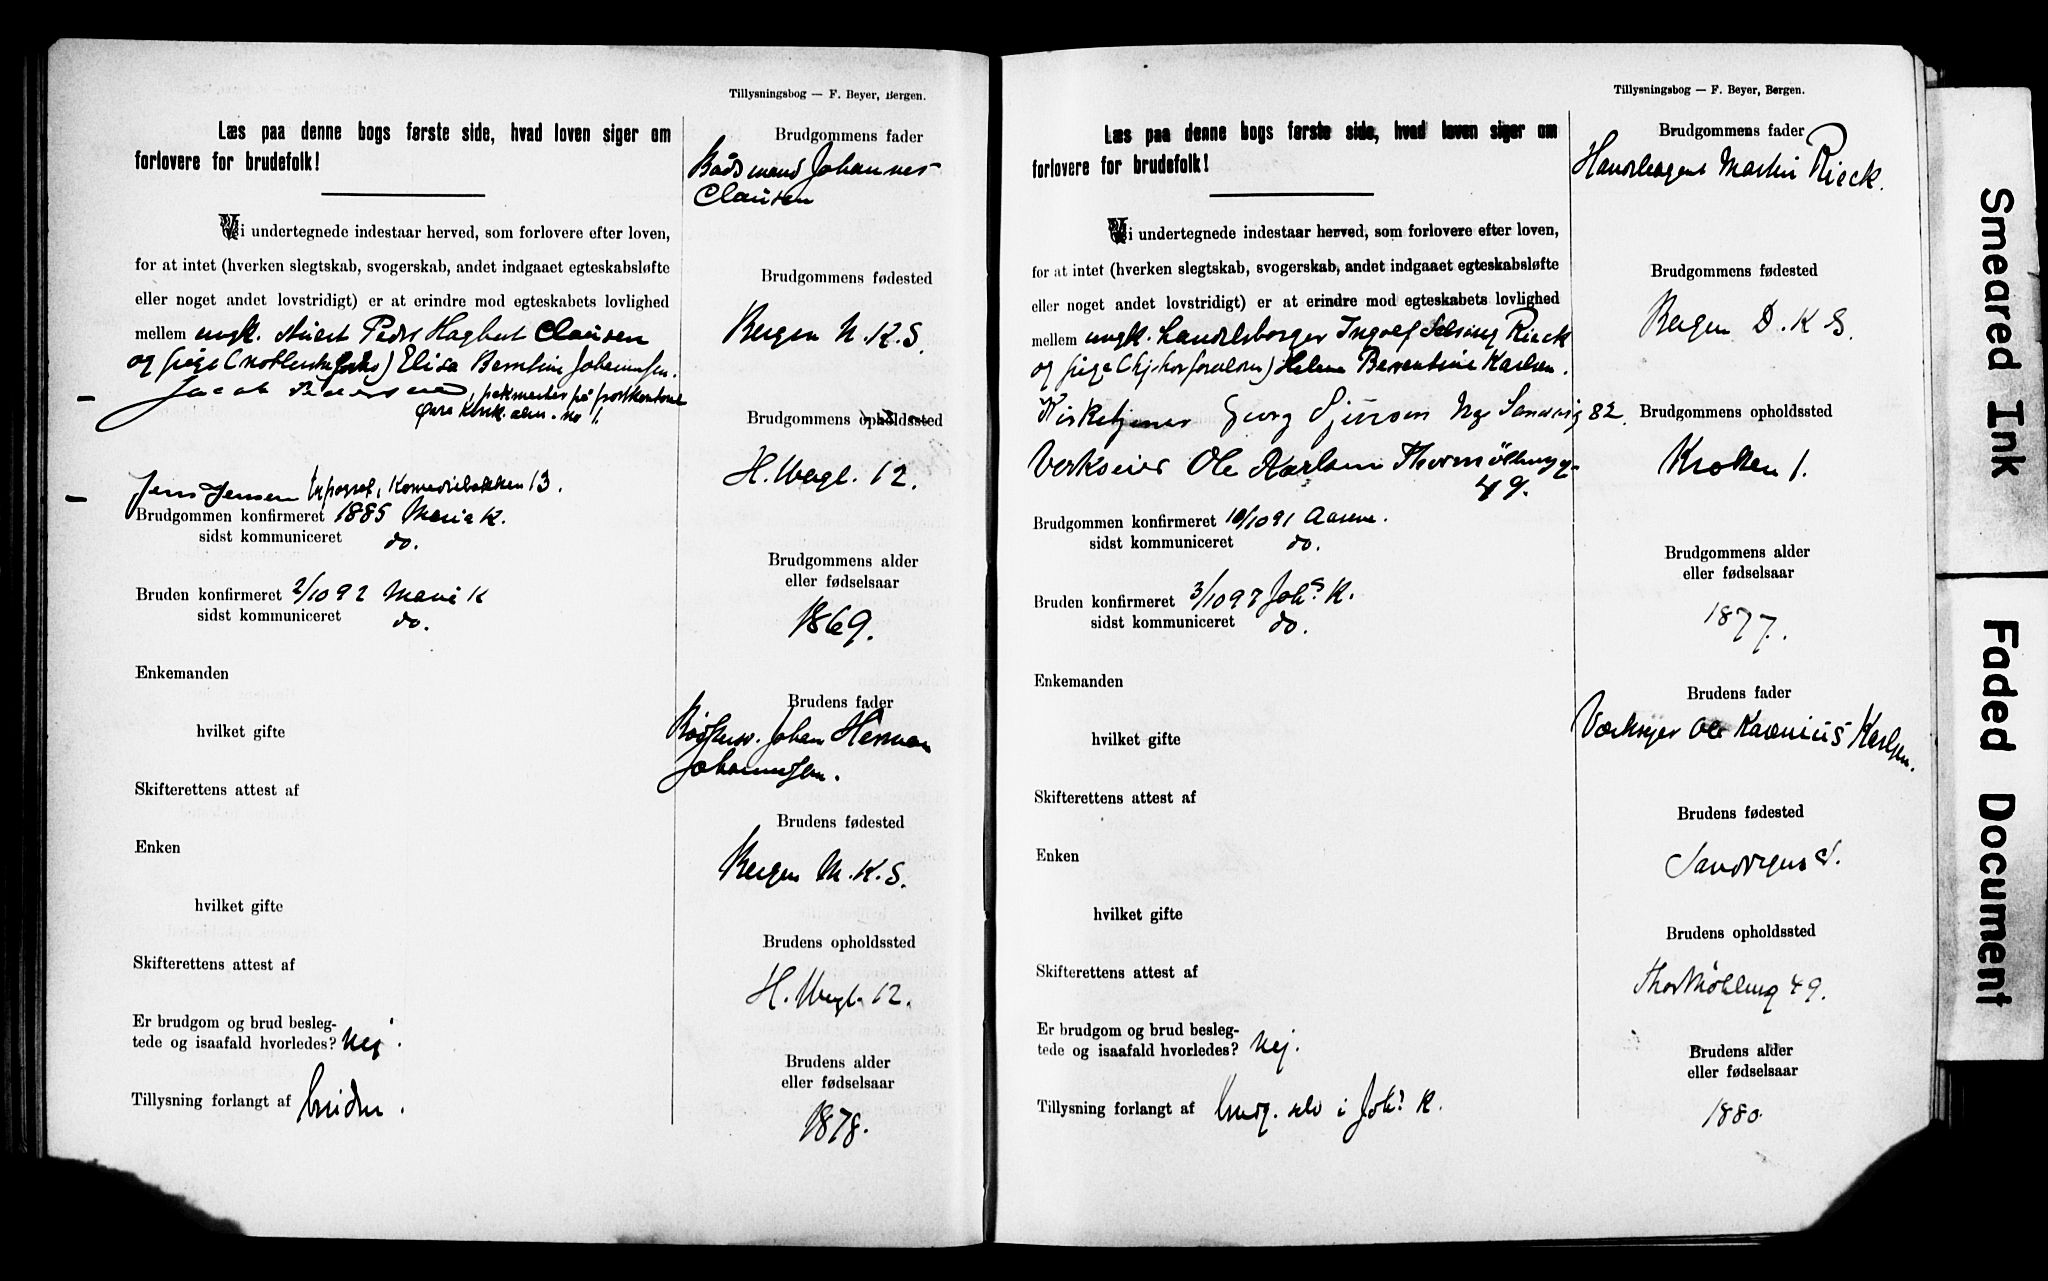 Tillysningsbog — F. Beyer, Bergen.
Læs paa denne bogs første side, hvad loven siger om
forlovere for brudefolk!
Vi undertegnede indestaar herved, som forlovere efter loven,
for at intet (hverken slegtskab, svogerskab, andet indgaaet egteskabsløfte
eller noget andet lovstridigt) er at erindre mod egteskabets lovlighed
mellem ungk. stuert Peder Hagbert Clausen
og pige Elisa Berntine Johannesen.
Jacob Pedersen, pakmester på postkontoret
Øvre Kirk. alm. no 1.
Jens Jensen typograf, Komediebakken 13.
Brudgommen konfirmeret 1885 Marie K.
sidst kommuniceret do.
Bruden konfirmeret 2/10 92 Marie K
sidst kommuniceret do.
Enkemanden
hvilket gifte
Skifterettens attest af
Enken
hvilket gifte
Skifterettens attest af
Er brudgom og brud besleg-
tede og isaafald hvorledes? Nej.
Tillysning forlangt af bruden.
Brudgommens fader
Bådsmand Johannes
Clausen
Brudgommens fødested
Bergen N. K. S.
Brudgommens opholdssted
H. Wegl. 12.
Brudgommens alder
eller fødselsaar
1869.
Brudens fader
Johan Herman
Johannesen.
Brudens fødested
Bergen M. K. S.
Brudens opholdssted
H. Wegl. 12.
Brudens alder
eller fødselsaar
1878.
Tillysningsbog — F. Beyer, Bergen.
Læs paa denne bogs første side, hvad loven siger om
forlovere for brudefolk!
Vi undertegnede indestaar herved, som forlovere efter loven,
for at intet (hverken slegtskab, svogerskab, andet indgaaet egteskabsløfte
eller noget andet lovstridigt) er at erindre mod egteskabets lovlighed
mellem ungk. handelsborger Ingolf Selsing Rieck
og pige (hj. hos forældren) Helene Berentine Karlsen.
Kirketjener Georg Sjursen Nye Sandvig 82.
Verkseier Ole Karlsen Thormøhlensg.
49.
Brudgommen konfirmeret 10/10 91 Aasene.
sidst kommuniceret do.
Bruden konfirmeret 3/10 97 Johs K.
sidst kommuniceret do.
Enkemanden
hvilket gifte
Skifterettens attest af
Enken
hvilket gifte
Skifterettens attest af
Er brudgom og brud besleg-
tede og isaafald hvorledes? Nej.
Tillysning forlangt af brudg. selv i Johs K.
Brudgommens fader
Handelsagent Martin Rieck.
Brudgommens fødested
Bergen D. K S.
Brudgommens opholdssted
Kroken 1.
Brudgommens alder
eller fødselsaar
1877.
Brudens fader
Værksejer Ole Karlsen.
Brudens fødested
Sandvigens S.
Brudens opholdssted
Thormøhlensg 49.
Brudens alder
eller fødselsaar
1880.
Smeared Ink
Faded Document